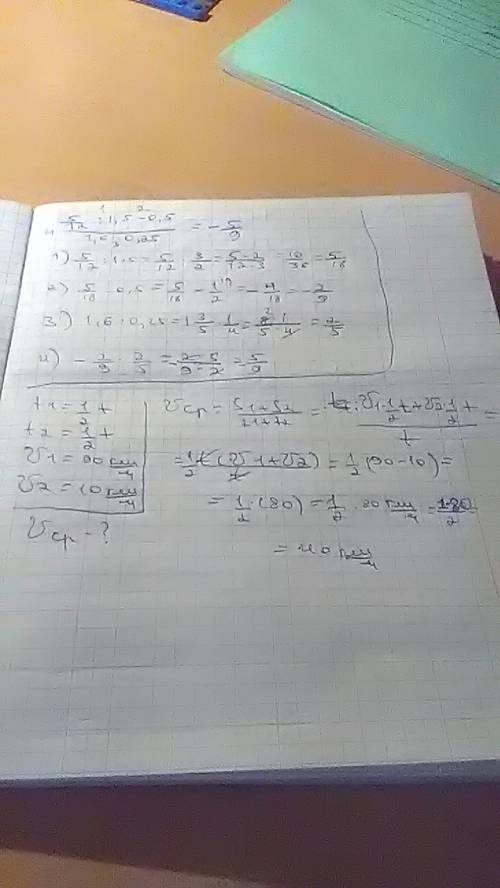 1 2
4 5/12 : 1,5 - 0,5 / 1,6 · 0,25 = - 5/9
3
1) 5/12 : 1.5 = 5/12 : 3/2 = 5·2/12·3 = 10/36 = 5/18
2) 5/18 - 0,5 = 5/18 - 1/2 = - 4/18 = - 2/9
3) 1,6 · 0,25 = 1 3/5 · 1/4 = 8/5 · 1/4 = 2/5
4) - 2/9 : 2/5 = - 2·5/9·2 = 5/9
t1 = 1/2 t
t2 = 1/2 t
V1 = 90 км/ч
V2 = 10 км/ч
Vср - ?
Vср = S1+S2/t1+t2 = V1·1/2 t + V2·1/2 t / t =
= 1/2 t (V1+V2) / t = 1/2 (90-10) =
= 1/2 · (80) = 1/2 · 80 км/ч = 1·80/2
= 40 км/ч